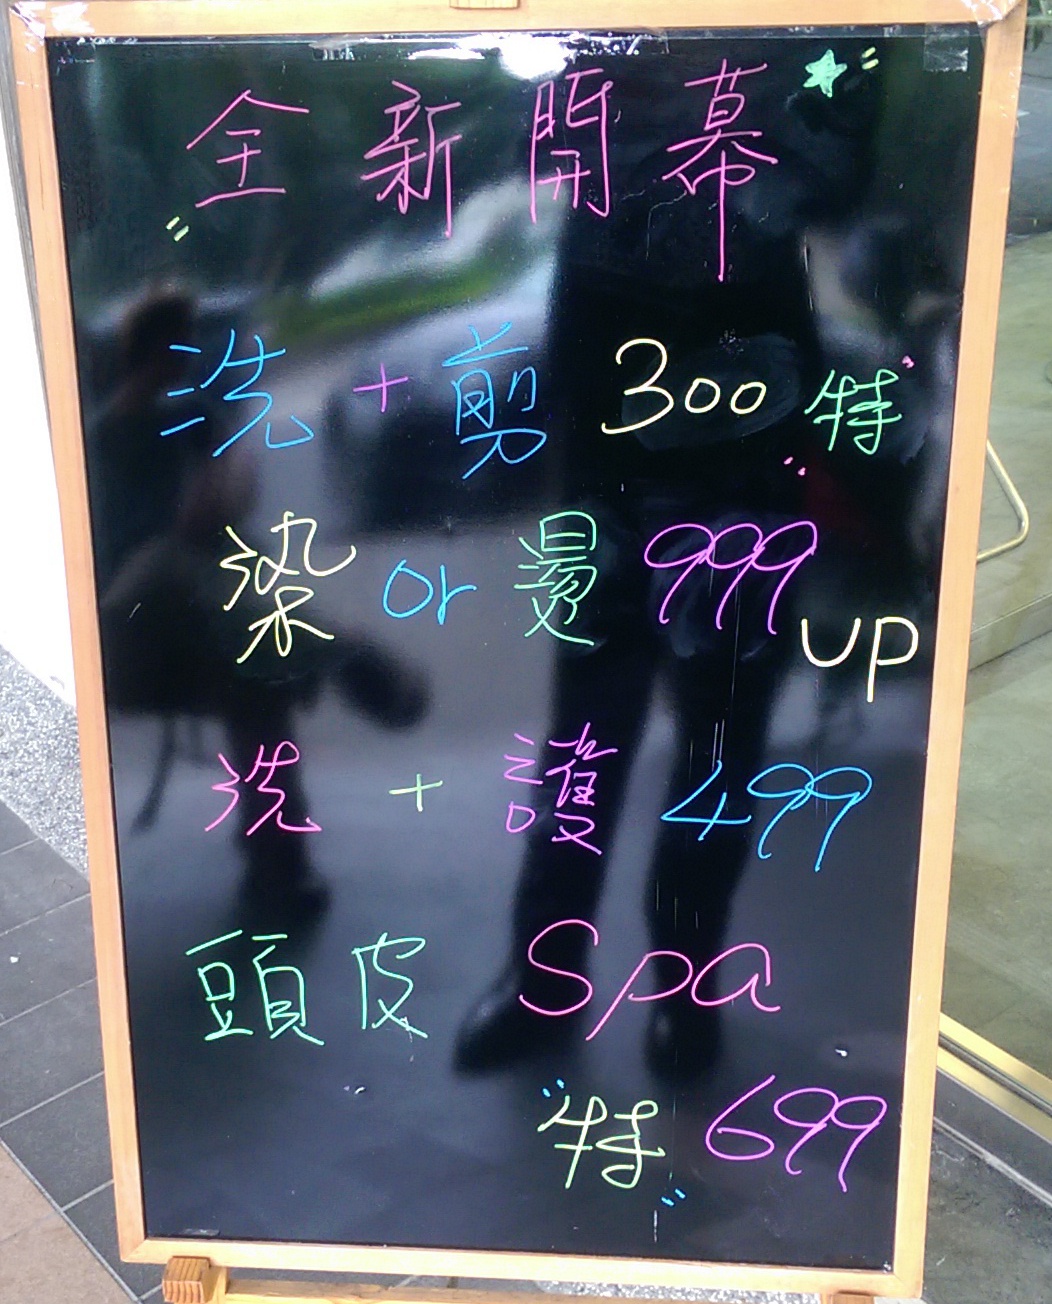 全新開幕
洗+剪 300 "特"
染 or 燙 999 UP
洗 + 護 499
頭皮 Spa
"特" 699